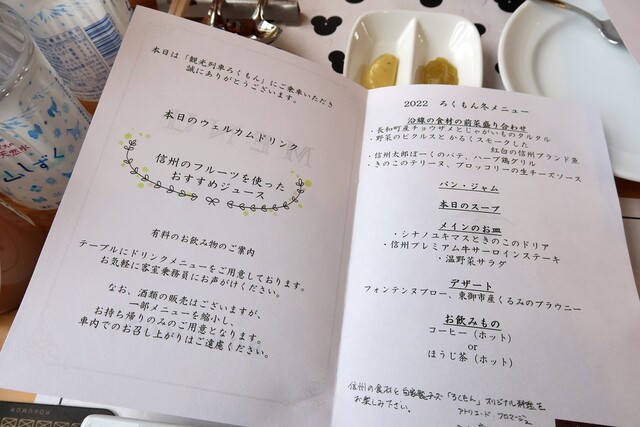 本日は「観光列車ろくもん」にご乗車いただき
誠にありがとうございます。
本日のウェルカムドリンク
信州のフルーツを使った
おすすめジュース
有料のお飲み物のご案内
テーブルにドリンクメニューをご用意しております。
お気軽に客室乗務員にお声がけください。
なお、酒類の販売はございますが、
一部メニューを縮小し、
お持ち帰りのみのご用意となります。
車内でのお召し上がりはご遠慮ください。
2022 ろくもん冬メニュー
沿線の食材の前菜盛り合わせ
・長和町産チョウザメとじゃがいものタルタル
・野菜のピクルスと かるくスモークした
紅白の信州ブランド魚
・信州太郎ぽーくのパテ、ハーブ鶏グリル
・きのこのテリーヌ、ブロッコリーの生チーズソース
パン・ジャム
本日のスープ
メインのお皿
・シナノユキマスときのこのドリア
・信州プレミアム牛サーロインステーキ
・温野菜サラダ
デザート
フォンテンヌブロー、東御市産くるみのブラウニー
お飲みもの
コーヒー（ホット）
or
ほうじ茶（ホット）
信州の食材と自家製チーズ「ろくもん」オリジナル料理を
お楽しみ下さい。
アトリエ・ド・フロマージュ
山しずく